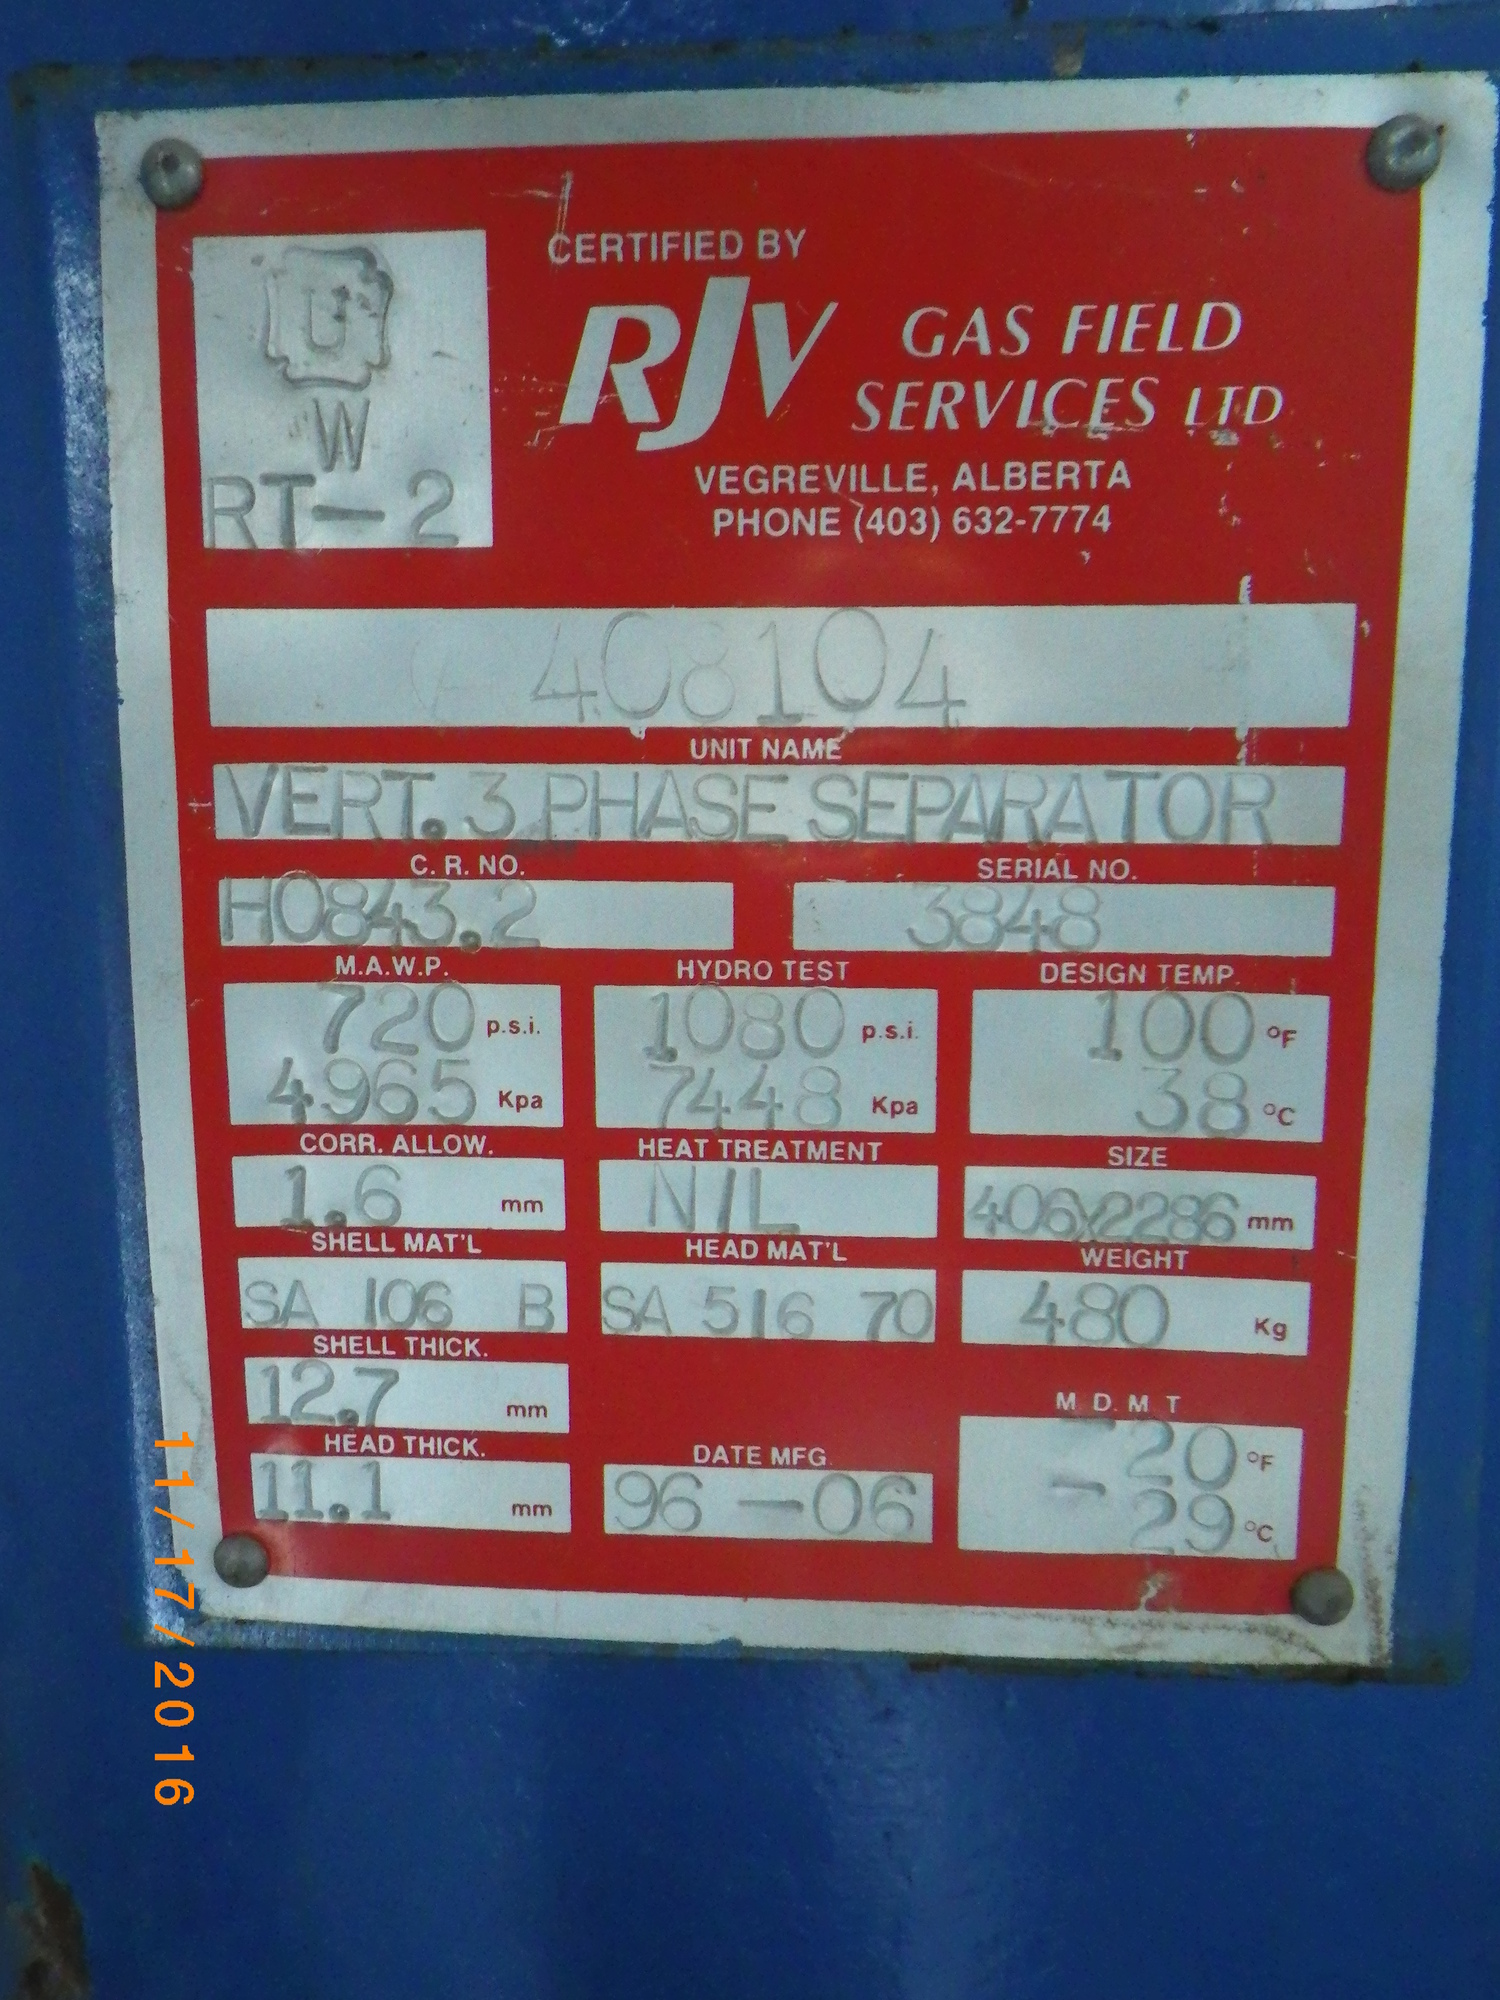 U
W
RT-2
CERTIFIED BY
RJV GAS FIELD
SERVICES LTD
VEGREVILLE, ALBERTA
PHONE (403) 632-7774
408104
UNIT NAME
VERT. 3 PHASE SEPARATOR
C. R. NO. SERIAL NO.
H0843.2 3848
M.A.W.P. HYDRO TEST DESIGN TEMP.
720 p.s.i. 1080 p.s.i. 100 °F
4965 Kpa 7448 Kpa 38 °C
CORR. ALLOW. HEAT TREATMENT SIZE
1.6 mm NIL 406X2286 mm
SHELL MAT'L HEAD MAT'L WEIGHT
SA 106 B SA 516 70 480 Kg
SHELL THICK.
12.7 mm
M. D. M. T
-20 °F
-29 °C
HEAD THICK. DATE MFG.
11.1 mm 96-06
11/17/2016